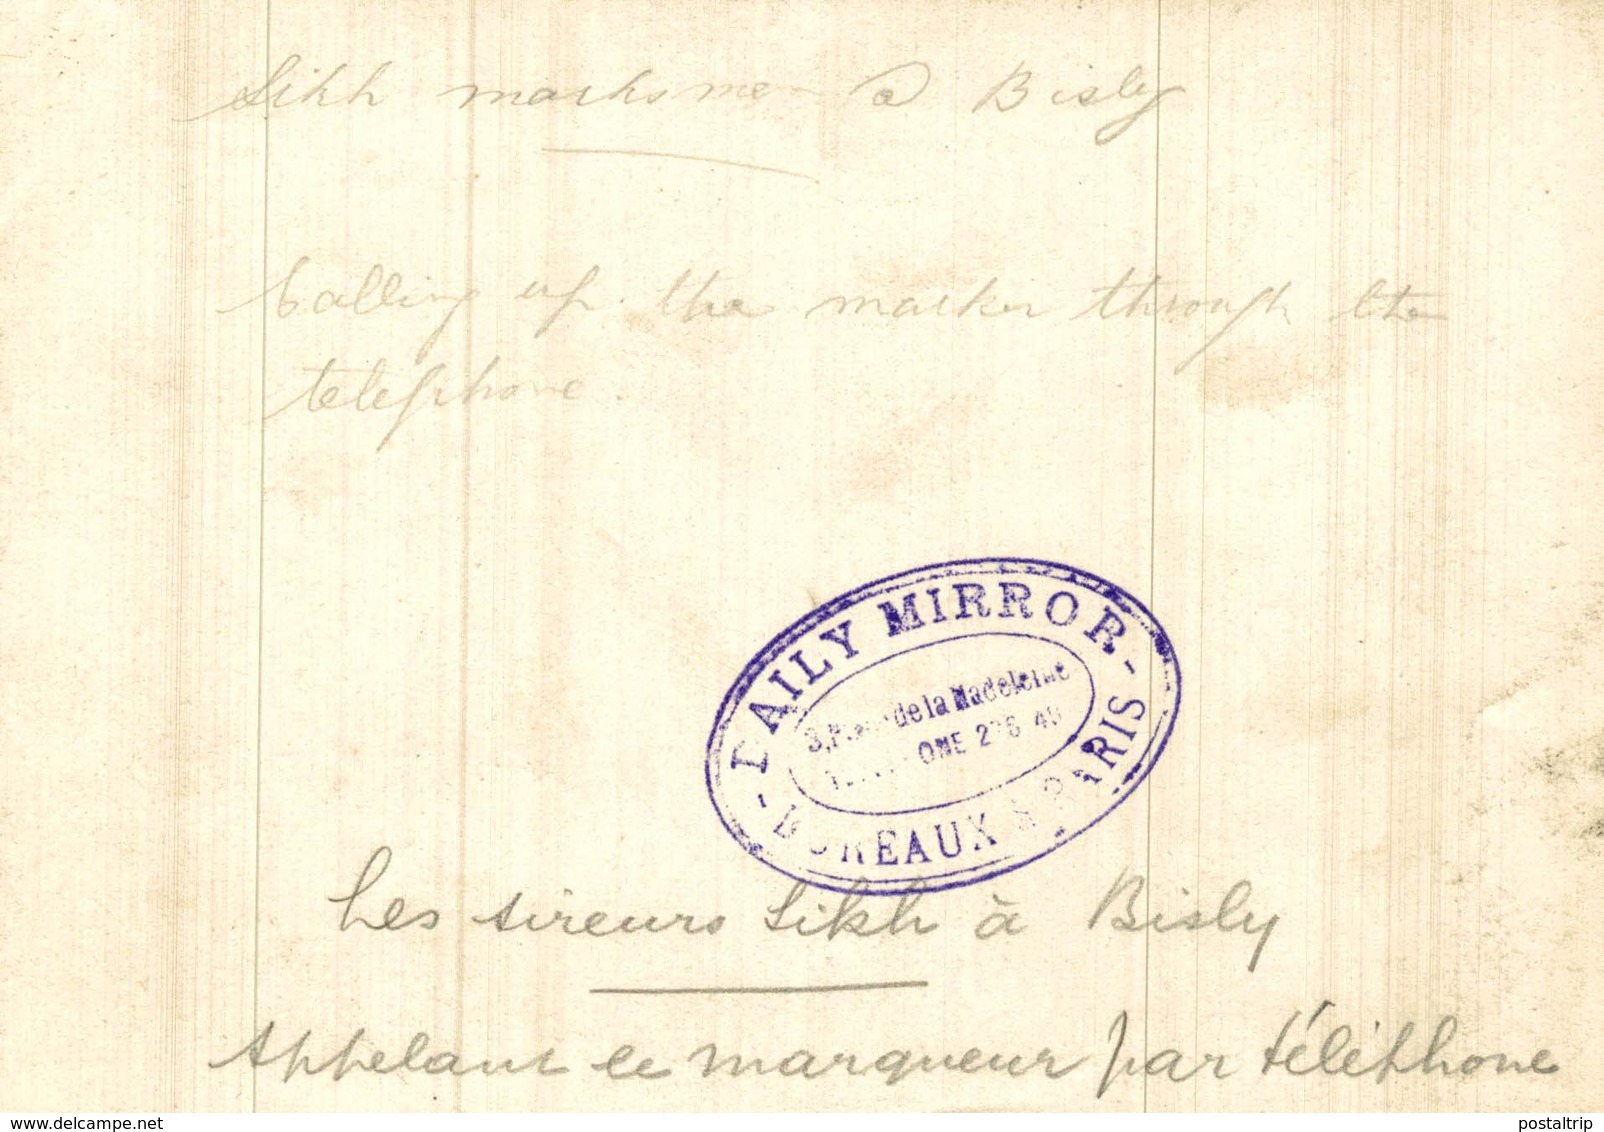 Sikh marksmen @ Bisley
Calling up the marker through the
telephone.
- DAILY MIRROR -
3, Place de la Madeleine
ONE 276 49
BUREAUX À PARIS
Les tireurs Sikh à Bisly
Appelant le marqueur par téléphone
www.delcampe.net
postaltrip